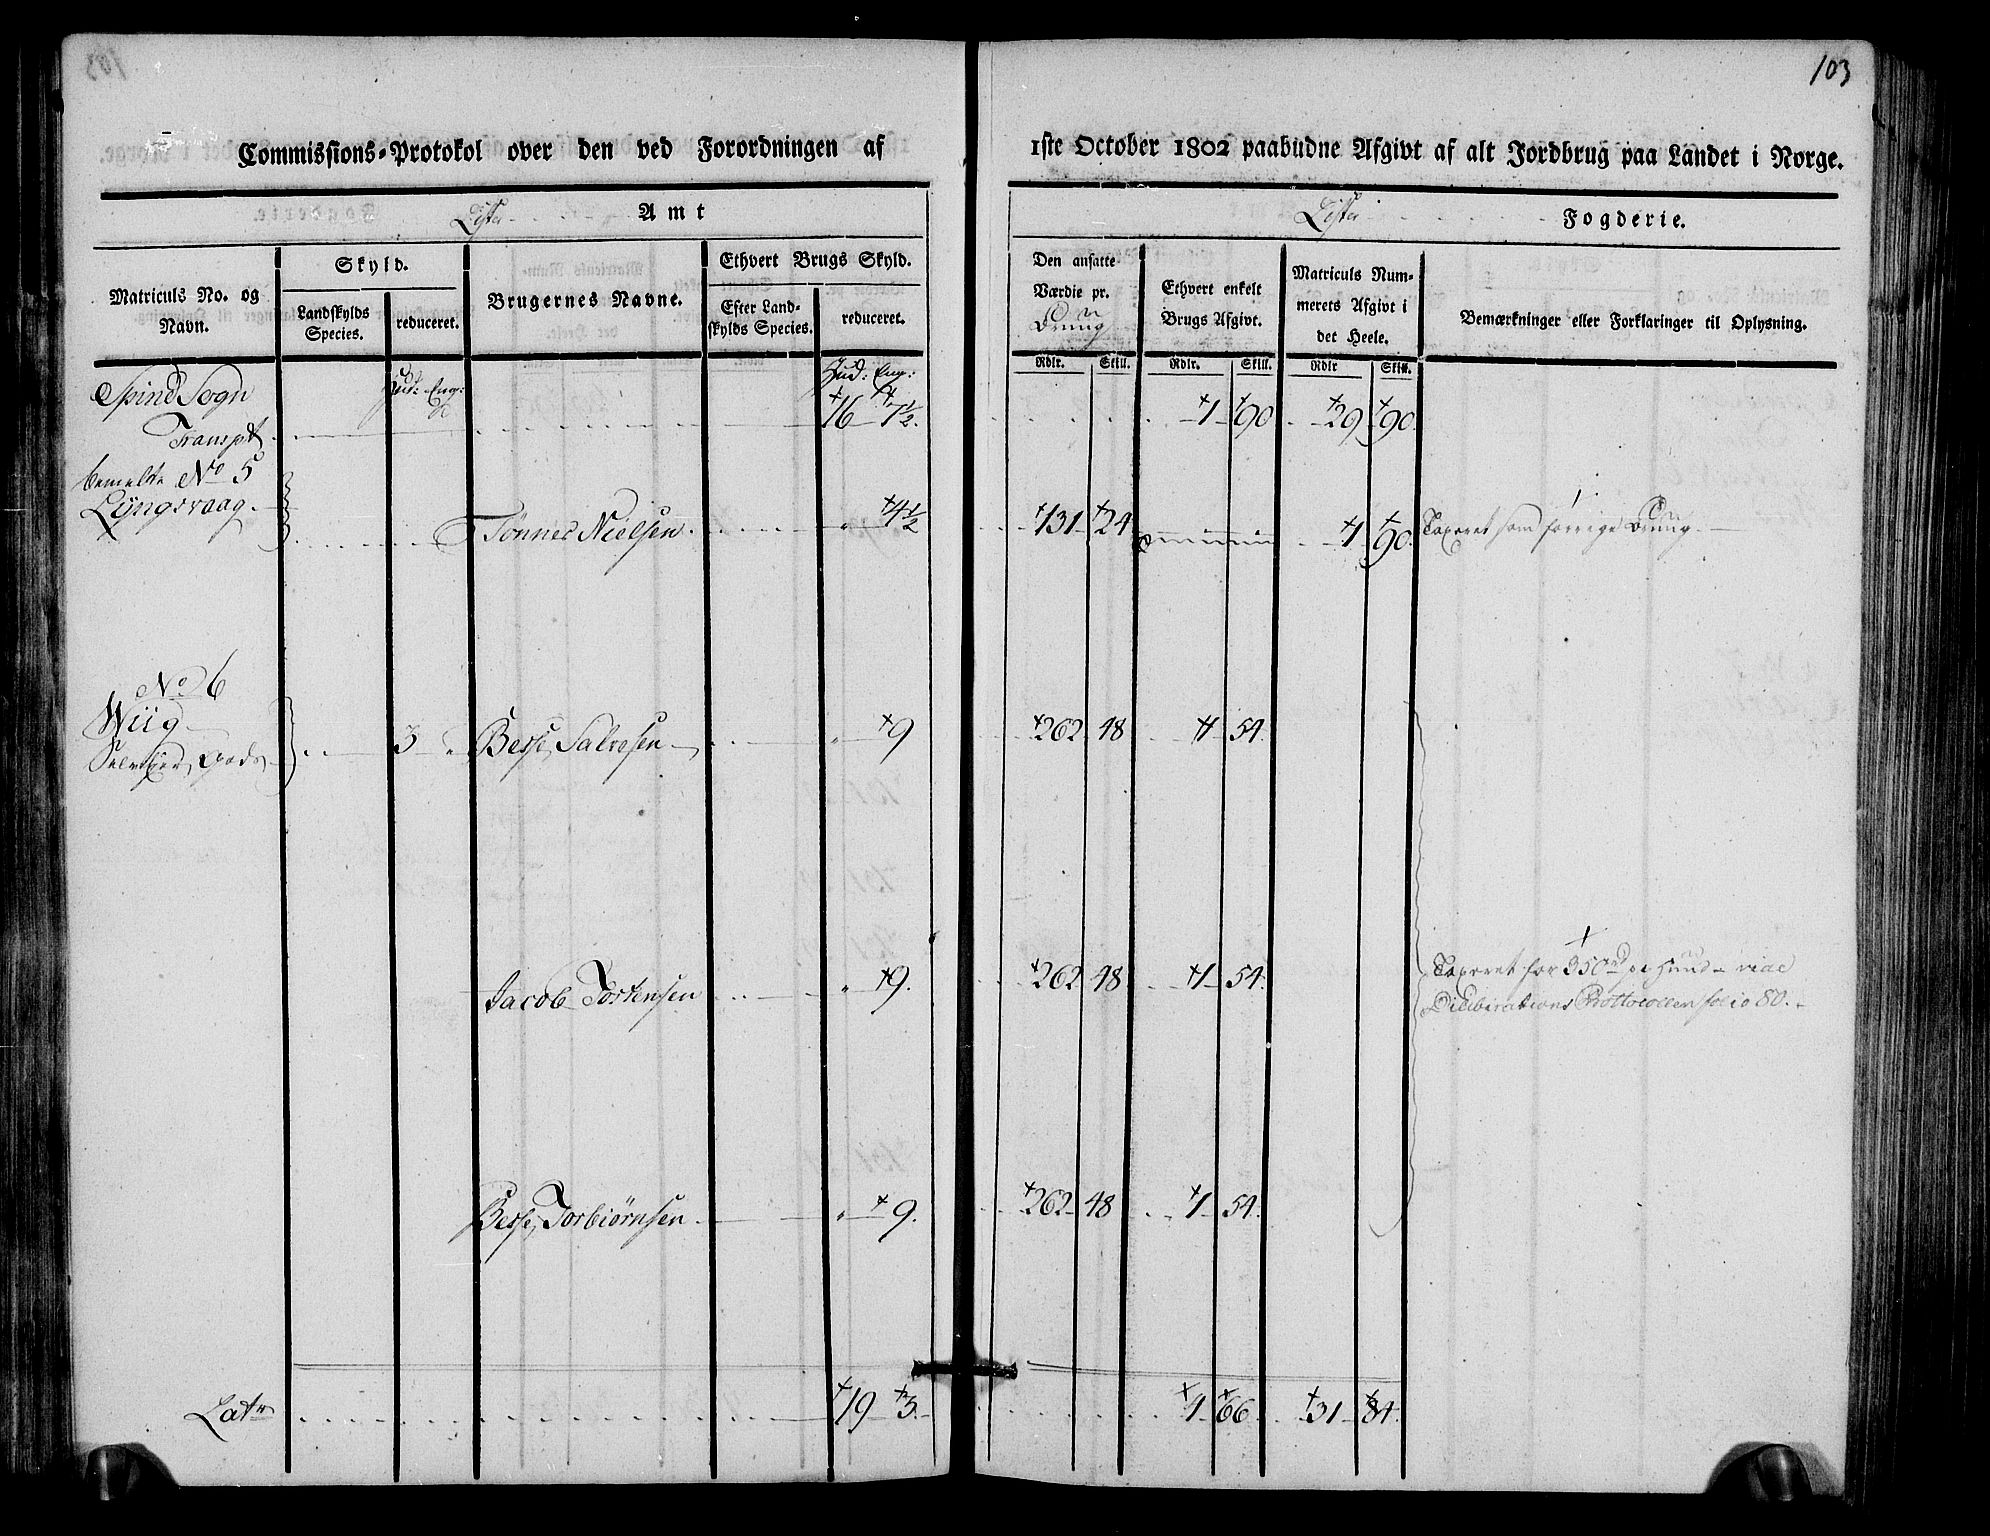 103
Commissions-Protokol over den ved Forordningen af 1ste October 1802 paabudne Afgivt af alt Jordbrug paa Landet i Norge.
Lister Amt
Lister Fogderie.
Matriculs No. og Navn.
Skyld.
Landskylds Species.
reduceret.
Brugernes Navne.
Ethvert Brugs Skyld.
Efter Landskylds Species.
reduceret.
Den ansatte Værdie pr.
Ethvert enkelt Brugs Afgivt.
Matriculs Nummerets Afgivt i det Heele.
Bemærkninger eller Forklaringer til Oplysning.
Rdlr. Skill. Rdlr. Skill. Rdlr Skill.
Spind Sogn Hud: Eng: Hud: Eng:
Transpt 16 7½. 1 90 29 90
bemelte No 5
Lyngsvaag
Tønnes Nielsen 4½ 131 24 1 90. Taxeret som forrige
No 6
Wiig
Gods 3 Berse Salvesen 9 262 48 1 54
Jacob Tostensen 9. 262 48 1 54. Taxeret for 350rd pr Huud vide
Diliberations Protocollen folio 80.
Berse Torbiørnsen 9. 262 48 1 54.
Latr 19 3. 1 66 31 84.